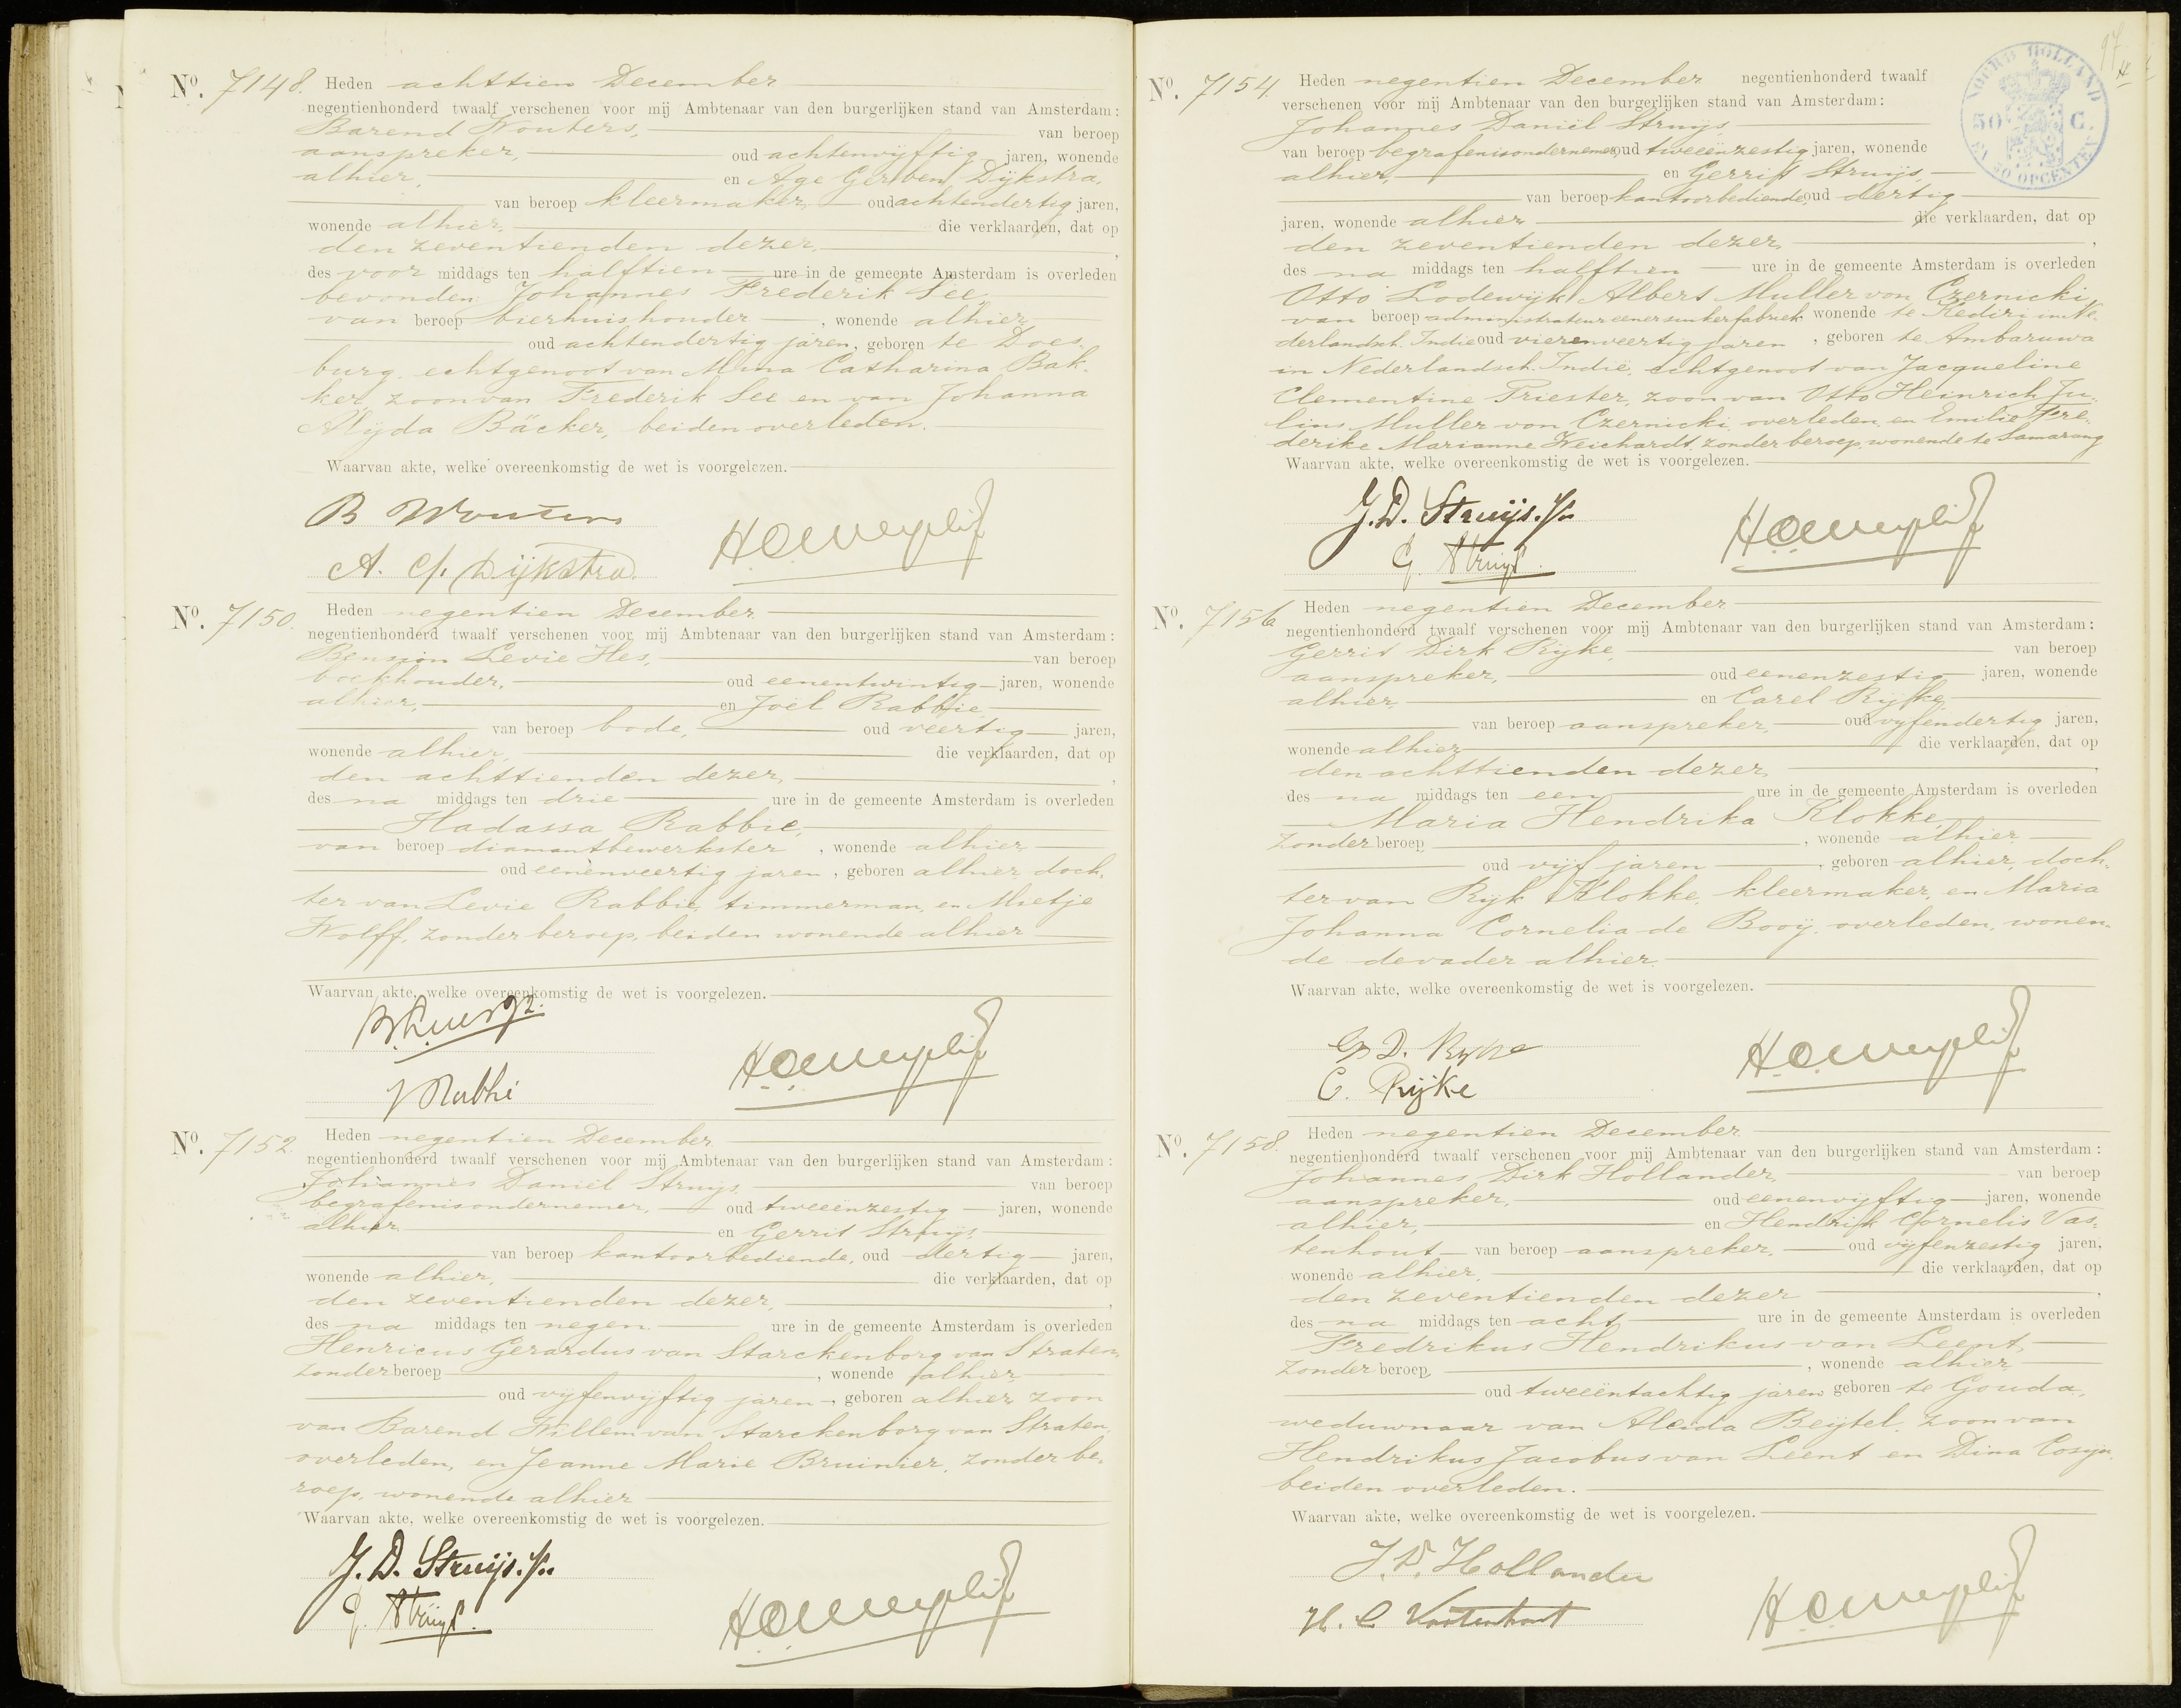 Nº. 7148. Heden achttien December
negentienhonderd twaalf verschenen voor mij Ambtenaar van den burgerlijken stand van Amsterdam:
Barend Wouters, van beroep
aanspreker, oud achtenvijftig jaren, wonende
alhier, en Age Gerben Dijkstra,
van beroep kleermaker, oud achtendertig jaren,
wonende alhier, die verklaarden, dat op
den zeventienden dezer,
des voor middags ten halftien ure in de gemeente Amsterdam is overleden
bevonden Johannes Frederik See,
van beroep bierhuishouder, wonende alhier,
oud achtendertig jaren, geboren te Does-
burg, echtgenoot van Mina Catharina Bak-
ker, zoon van Frederik See en van Johanna
Alijda Bäcker, beiden overleden.
Waarvan akte, welke overeenkomstig de wet is voorgelezen.
B Wouters
A. G. Dijkstra
Nº. 7150. Heden negentien December
negentienhonderd twaalf verschenen voor mij Ambtenaar van den burgerlijken stand van Amsterdam:
Bension Levie Hes, van beroep
boekhouder, oud eenentwintig jaren, wonende
alhier, en Joël Rabbie,
van beroep bode, oud veertig jaren,
wonende alhier, die verklaarden, dat op
den achttienden dezer,
des na middags ten drie ure in de gemeente Amsterdam is overleden
Hadassa Rabbie,
van beroep diamantbewerkster, wonende alhier
oud eenenveertig jaren, geboren alhier, doch-
ter van Levie Rabbie, timmerman, en Mietje
Wolff, zonder beroep, beiden wonende alhier
Waarvan akte, welke overeenkomstig de wet is voorgelezen.
J Rabbi
Nº. 7152. Heden negentien December
negentienhonderd twaalf verschenen voor mij Ambtenaar van den burgerlijken stand van Amsterdam:
Johannes Daniël Struijs, van beroep
begrafenisondernemer, oud tweeënzestig jaren, wonende
alhier en Gerrit Struijs,
van beroep kantoorbediende, oud dertig jaren,
wonende alhier, die verklaarden, dat op
den zeventienden dezer,
des na middags ten negen ure in de gemeente Amsterdam is overleden
Henricus Gerardus van Starckenborg van Straten,
zonder beroep, wonende alhier,
oud vijfenvijftig jaren, geboren alhier, zoon
van Barend Willem van Starckenborg van Straten,
overleden, en Jeanne Marie Bruinier, zonder be-
roep, wonende alhier
Waarvan akte, welke overeenkomstig de wet is voorgelezen.
J. D. Struijs. Jr.
G. Struijs.
97
NOORD HOLLAND
50 C.
EN 30 OPCENTEN
Nº. 7154. Heden negentien December negentienhonderd twaalf
verschenen voor mij Ambtenaar van den burgerlijken stand van Amsterdam:
Johannes Daniël Struijs
van beroep begrafenisondernemer, oud tweeënzestig jaren, wonende
alhier, en Gerrit Struijs,
van beroep kantoorbediende, oud dertig
jaren, wonende alhier die verklaarden, dat op
den zeventienden dezer,
des na middags ten halftien ure in de gemeente Amsterdam is overleden
Otto Lodewijk Albert Muller von Czernicki,
van beroep administrateur eener suikerfabriek wonende te Kediri in Ne-
derlandsch. Indie oud vierenveertig jaren, geboren te Ambarawa
in Nederlandsch. Indië, echtgenoot van Jacqueline
Clementine Triester, zoon van Otto Heinrich Ju-
lius Muller von Czernicki, overleden, en Emilie Fre-
derike Marianne Weichardt, zonder beroep, wonende te Samarang
Waarvan akte, welke overeenkomstig de wet is voorgelezen.
J. D. Struijs. Jr.
G. Struijs.
Nº. 7156 Heden negentien December
negentienhonderd twaalf verschenen voor mij Ambtenaar van den burgerlijken stand van Amsterdam:
Gerrit Dirk Rijke, van beroep
aanspreker, oud eenenzestig jaren, wonende
alhier, en Carel Rijke,
van beroep aanspreker, oud vijfendertig jaren,
wonende alhier die verklaarden, dat op
den achttienden dezer,
des na middags ten een ure in de gemeente Amsterdam is overleden
Maria Hendrika Klokke,
zonder beroep, wonende alhier
oud vijf jaren, geboren alhier, doch-
ter van Rijk Klokke, kleermaker, en Maria
Johanna Cornelia de Booij, overleden, wonen-
de de vader alhier
Waarvan akte, welke overeenkomstig de wet is voorgelezen.
G D. Rijke
C. Rijke
Nº. 7158. Heden negentien December
negentienhonderd twaalf verschenen voor mij Ambtenaar van den burgerlijken stand van Amsterdam:
Johannes Dirk Hollander, van beroep
aanspreker, oud eenenvijftig jaren, wonende
alhier, en Hendrik Cornelis Vas-
tenhout van beroep aanspreker, oud vijfenzestig jaren,
wonende alhier, die verklaarden, dat op
den zeventienden dezer
des na middags ten acht ure in de gemeente Amsterdam is overleden
Fredrikus Hendrikus van Leent,
zonder beroep, wonende alhier
oud tweeëntachtig jaren geboren te Gouda,
weduwnaar van Aleida Beijtel, zoon van
Hendrikus Jacobus van Leent en Dina Cosijn,
beiden overleden.
Waarvan akte, welke overeenkomstig de wet is voorgelezen.
J. D. Hollander
H. C Vastenhout